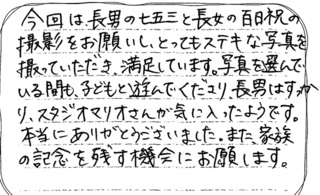 今回は、長男の七五三と長女の百日祝の
撮影をお願いし、とってもステキな写真を
撮っていただき、満足しています。写真を選んで
いる間も、子どもと遊んでくださり、長男はすっか
り、スタジオマリオさんが気に入ったようです。
本当にありがとうございました。また、家族
の記念を残す機会にお願します。